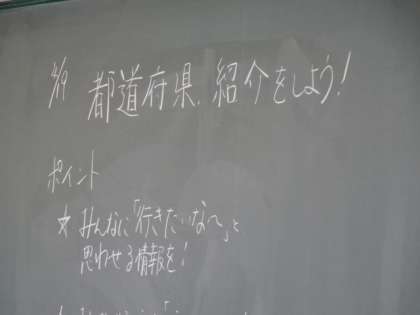 4/9 都道府県紹介をしよう!
ポイント
☆ みんなに「行きたいな〜」と
思わせる情報を!